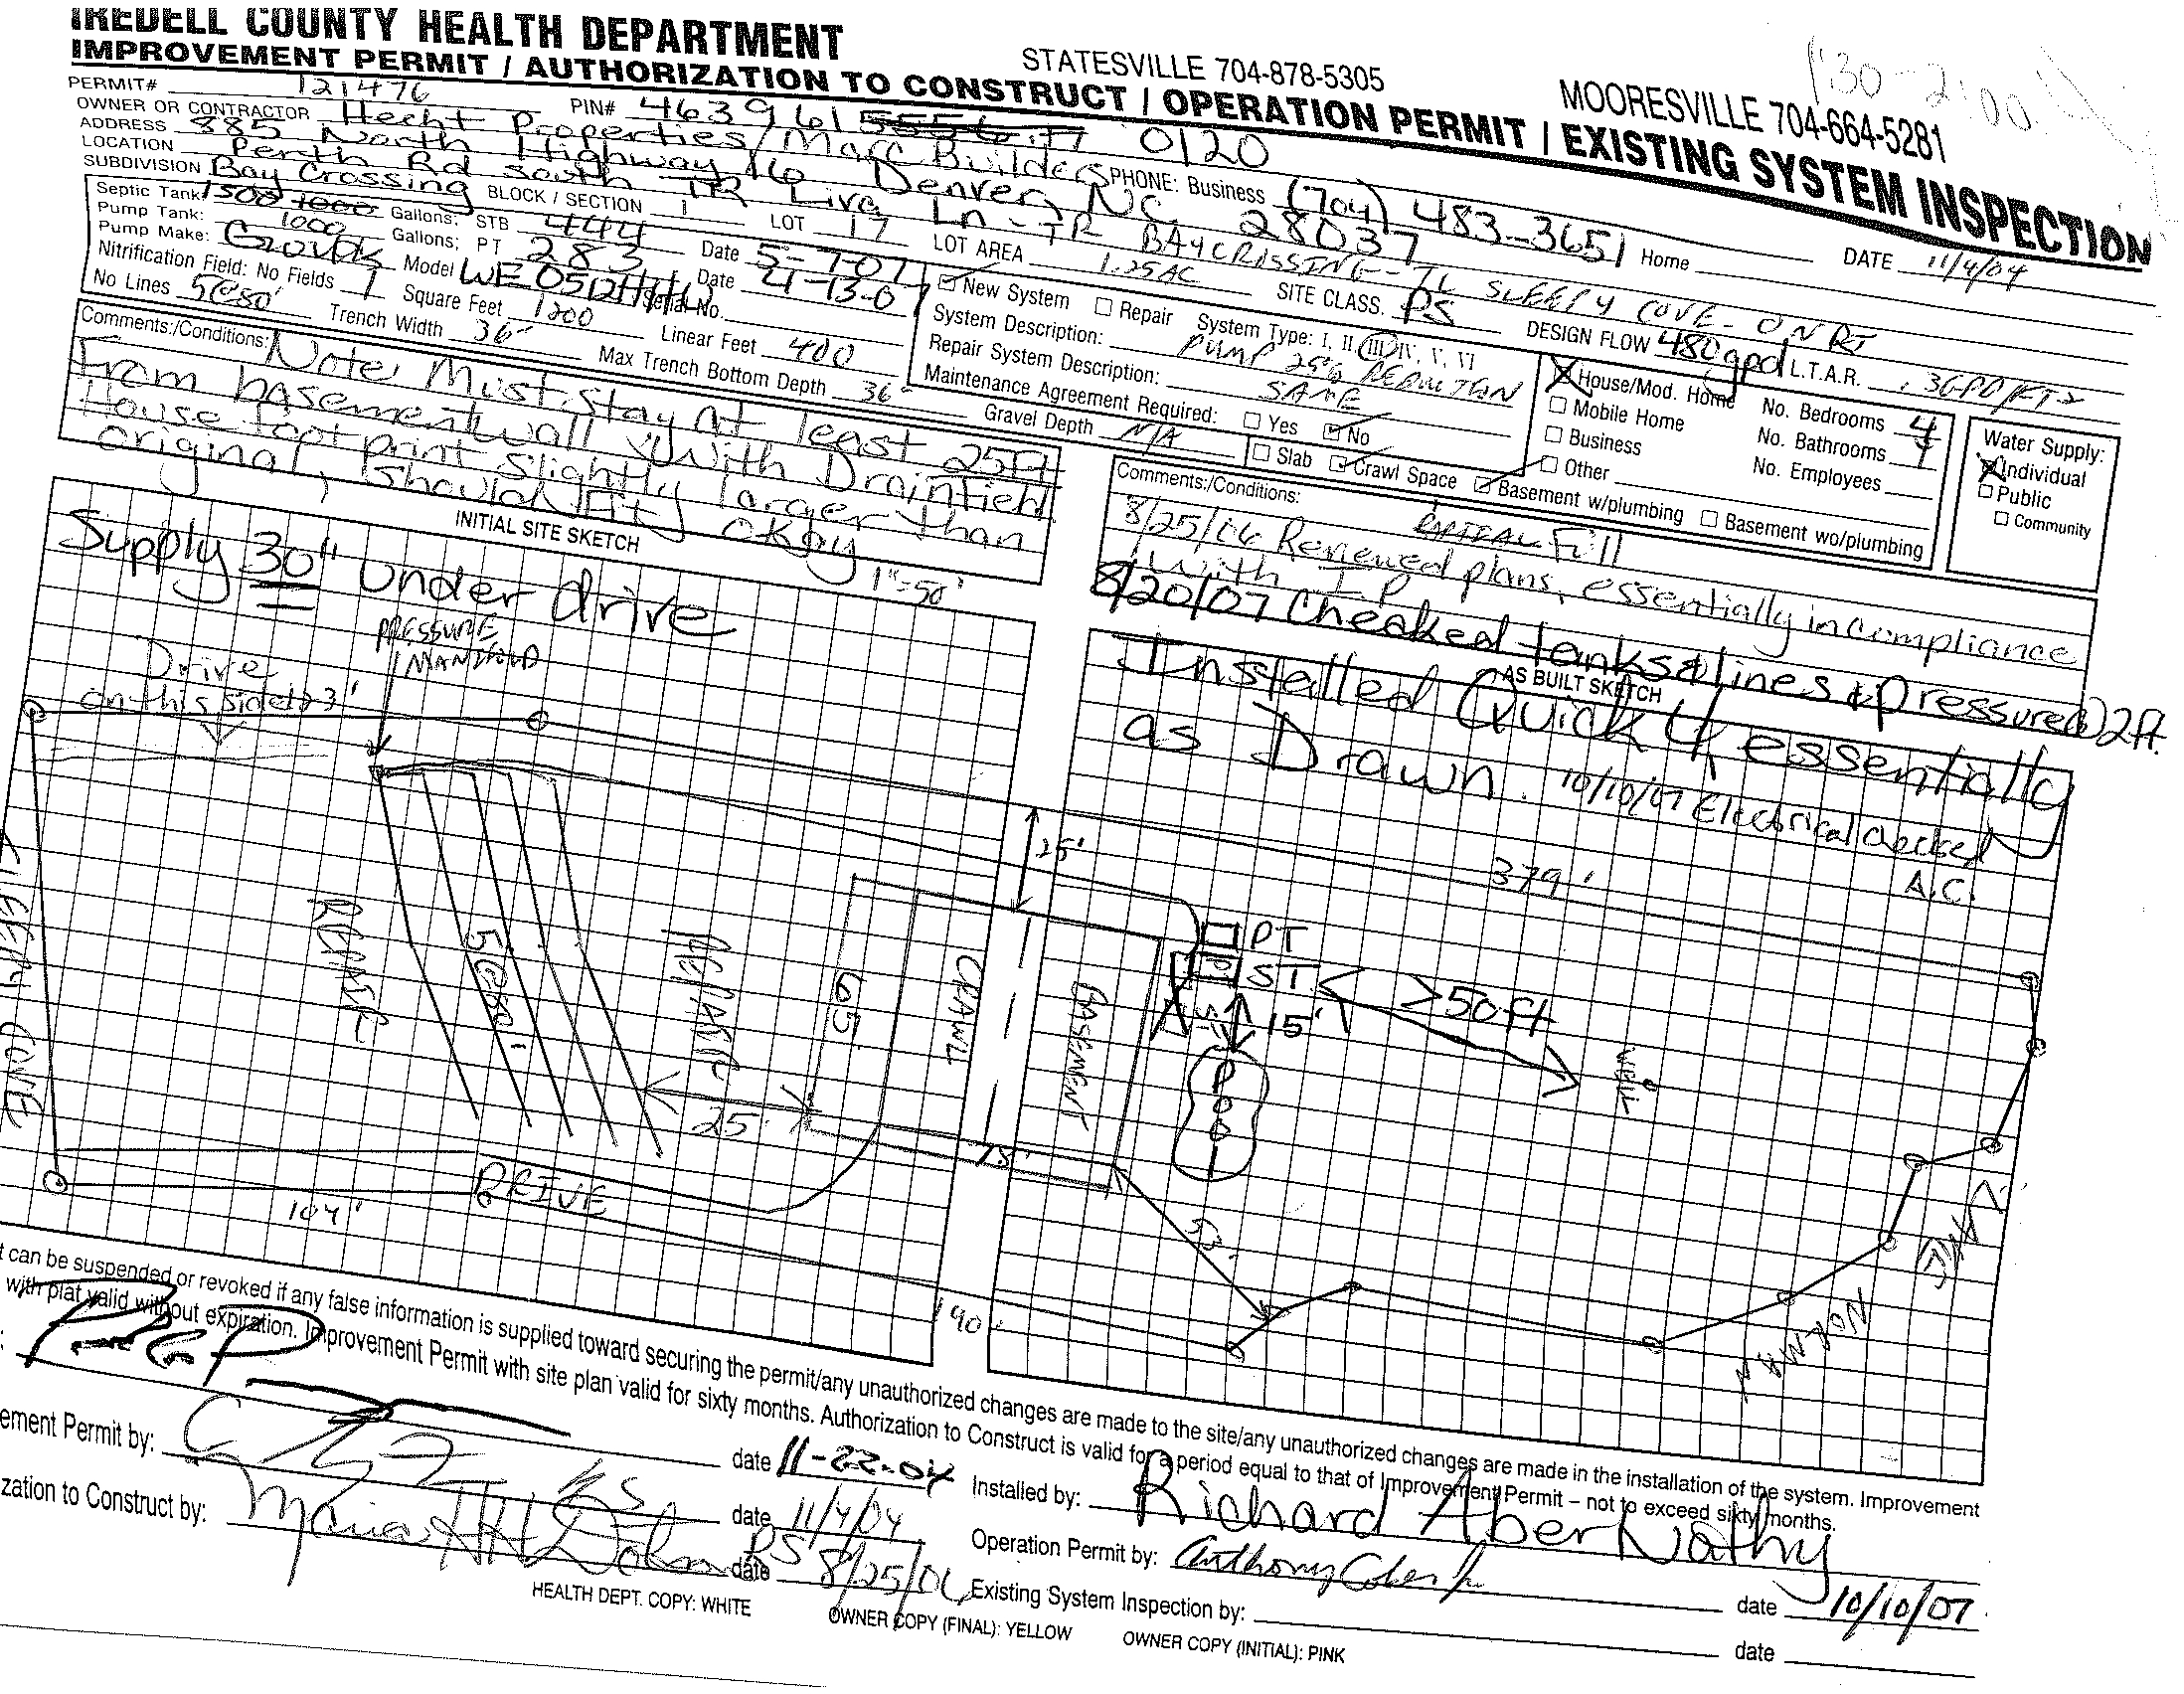 IREDELL COUNTY HEALTH DEPARTMENT
IMPROVEMENT PERMIT / AUTHORIZATION TO CONSTRUCT / OPERATION PERMIT / EXISTING SYSTEM INSPECTION
STATESVILLE 704-878-5305 MOORESVILLE 704-664-5281
PERMIT# 121476 PIN# 4639 61 0120
OWNER OR CONTRACTOR Hecht Properties/Marc Builders PHONE: Business (704) 483-3651 Home DATE 11/4/04
ADDRESS 885 North Highway 16 Denver, NC 28037
LOCATION Perth Rd south TR Liva Ln - TR BAY CROSSING - TL SLEEPY COVE - ON RT
SUBDIVISION Bay Crossing BLOCK / SECTION 1 LOT 17 LOT AREA 1.25AC SITE CLASS. PS DESIGN FLOW 480gpd L.T.A.R. .3GPD/FT2
Septic Tank: 1500 1000 Gallons: STB 444 Date 5-7-07
Pump Tank: 1000 Gallons: PT 283 Date 4-13-07
Pump Make: Goulds Model WE0512HH Serial No.
Nitrification Field: No Fields 1 Square Feet 1200 Linear Feet 400
No Lines 5@80' Trench Width 36" Max Trench Bottom Depth 36" Gravel Depth N/A
New System Repair System Type: I, II, III, IV, V, VI
System Description: PUMP 25% REDUCTION
Repair System Description: SAME
Maintenance Agreement Required: Yes No
Slab Crawl Space Basement w/plumbing Basement wo/plumbing
House/Mod. Home No. Bedrooms 4
Mobile Home No. Bathrooms 4
Business No. Employees
Other
Water Supply:
Individual
Public
Community
Comments:/Conditions: Note, Must stay at least 25ft
From basement wall with Drainfield
House footprint slightly larger than
original, should fit okay
Comments:/Conditions: Full
8/25/06 Reviewed plans, essentially in compliance
with I.P.
8/20/07 Checked tanks & lines & pressure @ 2ft.
INITIAL SITE SKETCH
1"=50'
Supply 30" under drive
PRESSURE
MANIFOLD
Drive
on this side
AS BUILT SKETCH
Installed Quick 4 essentially
as Drawn. 10/10/07 Electrical checked
A.C.
25'
379'
PT
ST
≥50ft
15'
5'
Pool
WELL
REPAIR
5@80'
REPAIR
65
CRAWL
BASEMENT
25'
75'
53'
SLEEPY COVE
DRIVE
104'
190'
LAKE NORMAN
t can be suspended or revoked if any false information is supplied toward securing the permit/any unauthorized changes are made to the site/any unauthorized changes are made in the installation of the system. Improvement
with plat valid without expiration. Improvement Permit with site plan valid for sixty months. Authorization to Construct is valid for a period equal to that of Improvement Permit – not to exceed sixty months.
date 11-22-04 Installed by: Richard AberNathy
ement Permit by: date 11/4/04 Operation Permit by: date 10/10/07
zation to Construct by: date 8/25/06 Existing System Inspection by: date
HEALTH DEPT. COPY: WHITE OWNER COPY (FINAL): YELLOW OWNER COPY (INITIAL): PINK